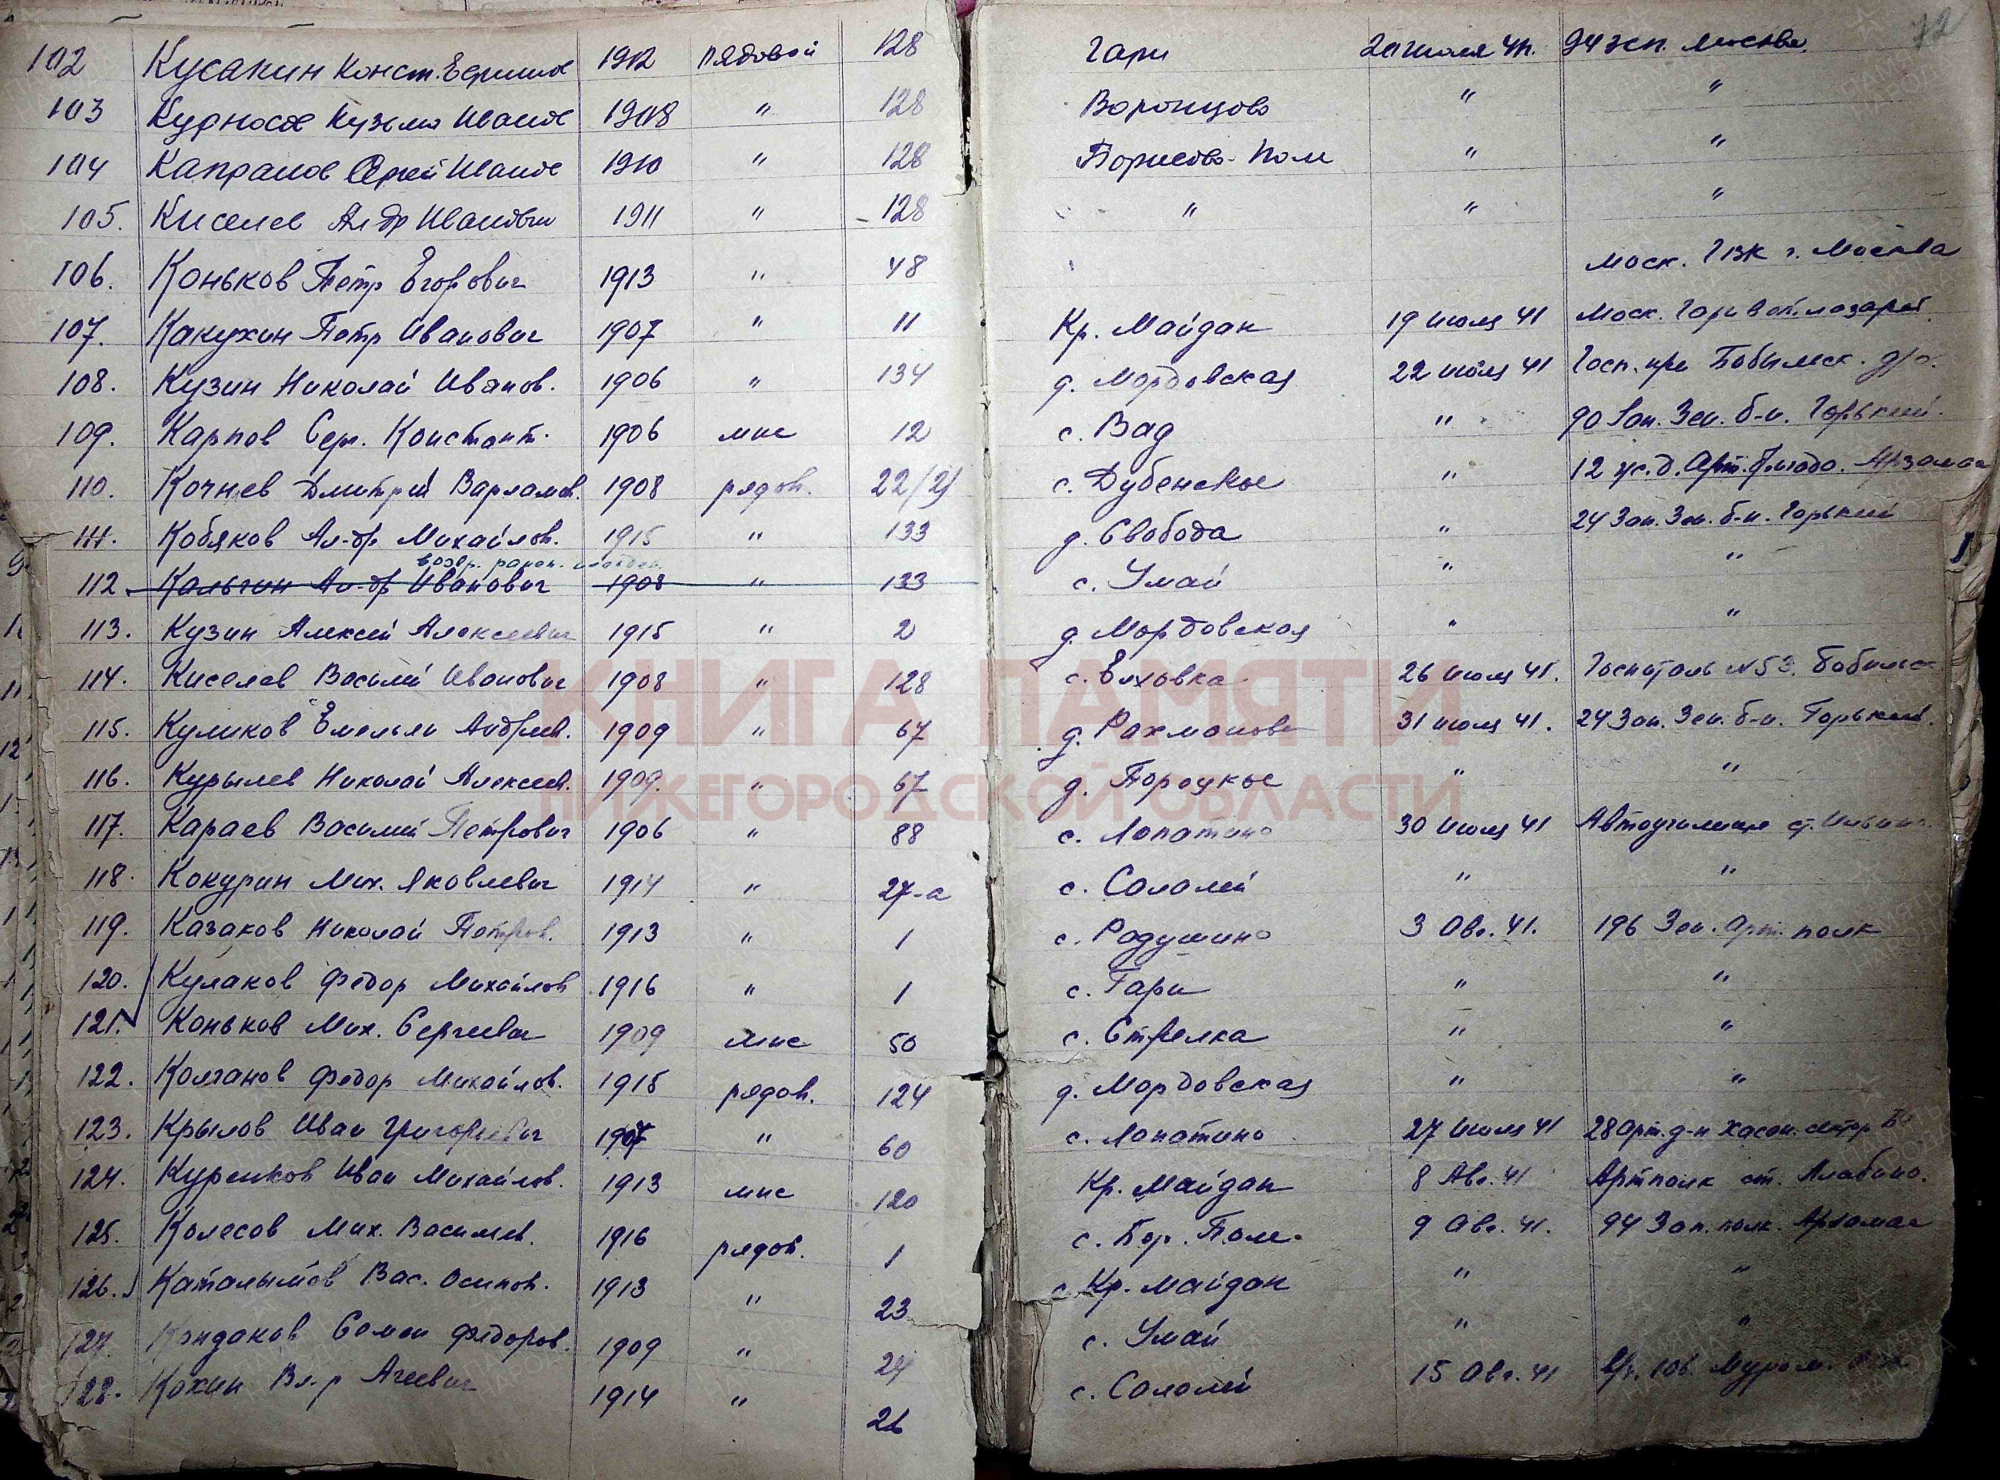 72
102 Кусакин Конст. Ефимов 1912 рядовой 128 Гари 20 июля 41. 94 зсп. Москва.
103 Курносов Кузьма Иванов 1908 " 128 Воронцово " "
104 Капранов Сергей Иванов 1910 " 128 Борисово-Пом " "
105. Киселев Ал-др Иванович 1911 " 128 " " "
106. Коньков Петр Егорович 1913 " 48 Моск. г. Москва
107. Какухин Петр Иванович 1907 " 11 Кр. Майдан 19 июля 41 Моск. лазарет
108. Кузин Николай Иванов. 1906 " 134 д. Мордовская 22 июля 41 Госп. при
109. Карпов Сер. Констант. 1906 мнс 12 с. Вад " 90 Зап. Зен. б-н. Горький.
110. Кочнев Дмитрий Варламов. 1908 рядов. 22/2/ с. Дубенское " 12 Арзамас
111. Кобяков Ал-др Михайлов. 1915 " 133 д. Свобода " 24 Зап. Зен. б-н. Горький
возвр.
112. Кальгин Ал-др Иванович 1908 " 133 с. Умай " "
113. Кузин Алексей Алексеевич 1915 " 2 д. Мордовская " "
114. Киселев Василий Иванович 1908 " 128 с. Елховка 26 июля 41. Госпиталь №
115. Куликов Емельян Андреев. 1909 " 67 д. Рахманово 31 июля 41. 24 Зап. Зен. б-н. Горький.
116. Курылев Николай Алексеев. 1909. " 67 д. Пороцкое " "
117. Караев Василий Петрович 1906 " 88 с. Лопатино 30 июля 41 Автоучилище ст.
118. Кокурин Мих. Яковлевич 1914 " 27-а с. Салалей " "
119. Казаков Николай Петров. 1913 " 1 с. Радушино 3 Авг. 41. 196 Зен. Арт. полк
120. Кулаков Федор Михайлов 1916 " 1 с. Гари " "
121. Коньков Мих. Сергеевич 1909 мнс 50 с. Стрелка " "
122. Колганов Федор Михайлов. 1915 рядов. 124 д. Мордовская " "
123. Крылов Иван Григорьевич 1907 " 60 с. Лопатино 27 июля 41 28 Арт. д-н
124. Куренков Иван Михайлов. 1913 мнс 120 Кр. Майдан 8 Авг. 41 Артполк ст. Алабино.
125. Колесов Мих. Васильев. 1916 рядов. 1 с. Бор. Пом. 9 Авг. 41. 94 Зап. полк. Арзамас
126. Каталымов Вас. Осипов. 1913 " 23 с. Кр. Майдан " "
127. Кондаков Семен Федоров. 1909 " 24 с. Умай " "
128. Кохин Вл-р Агеевич 1914 " 26 с. Салалей 15 Авг. 41 Муром.
КНИГА ПАМЯТИ
НИЖЕГОРОДСКОЙ ОБЛАСТИ